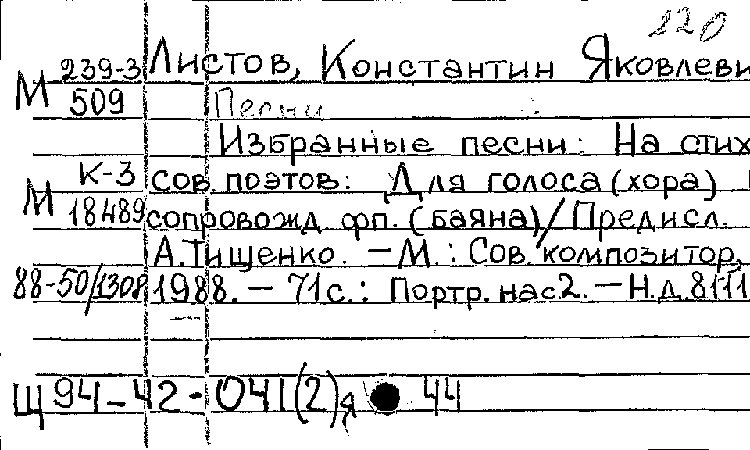 220
М 239-3 Листов, Константин Яковлеви
509 Песни
Избранные песни: На стих
М К-3 сов. поэтов: Для голоса (хора)
18489 сопровожд. фп. (баяна)/Предисл.
А.Тищенко. — М.: Сов. композитор,
88-50/1308 1988. — 71 с.: Портр. нас 2. — Н.д. 8111
Щ 94-42-041(2)я 44